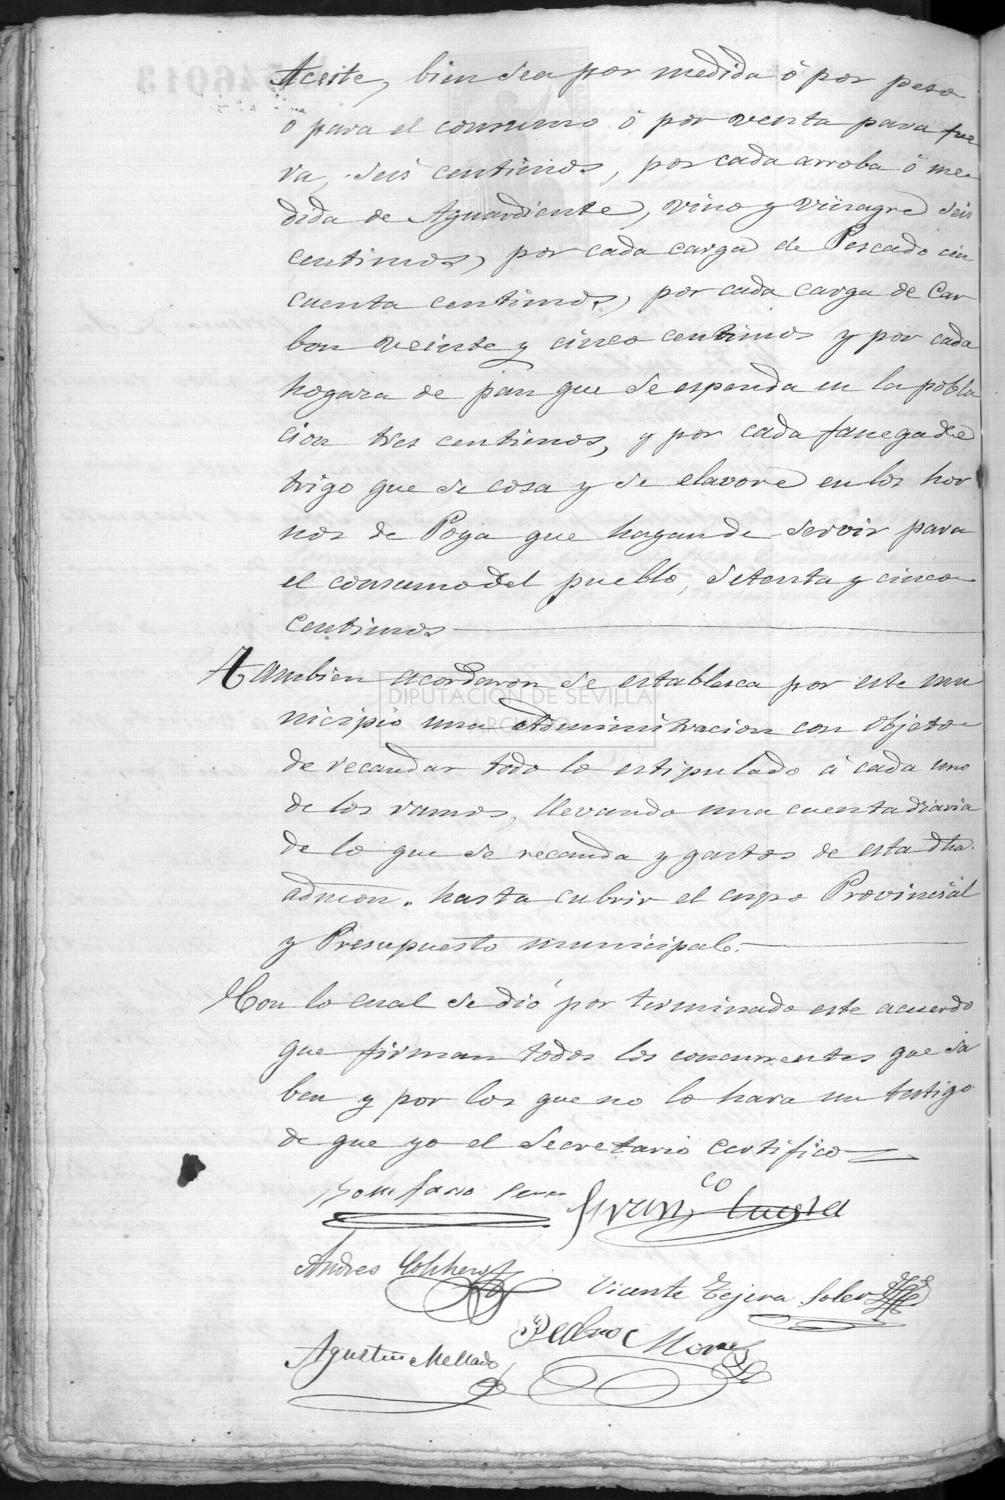 Aceite, bien sea por medida ó por peso
ó para el consumo ó por venta para fue
ra, seis centimos, por cada arroba ó me-
dida de Aguardiente, vino y vinagre seis
centimos, por cada carga de Pescado cin
cuenta centimos, por cada carga de Car
bon veinte y cinco centimos y por cada
hogaza de pan que se espenda en la pobla
cion tres centimos, y por cada fanega de
trigo que se cosa y se elavore en los hor
nos de Poya que hayan de servir para
el consumo del pueblo, setenta y cinco
centimos
Tambien acordaron se establesca por este mu
nicipio una Administracion con objeto
de recaudar todo lo estipulado á cada uno
de los ramos, llevando una cuenta diaria
de lo que se recauda y gastos de esta dha.
admon. hasta cubrir el cupo Provincial
y Presupuesto municipal.
Con lo cual se dió por terminado este acuerdo
que firman todos los concurrentes que sa
ben y por los que no lo hara un testigo
de que yo el Secretario certifico
Bonifacio Franco Cuesta
Andres
Vicente Tejera Soler
Pedro
Agustin Mellado
DIPUTACIÓN DE SEVILLA
ARCHIVO